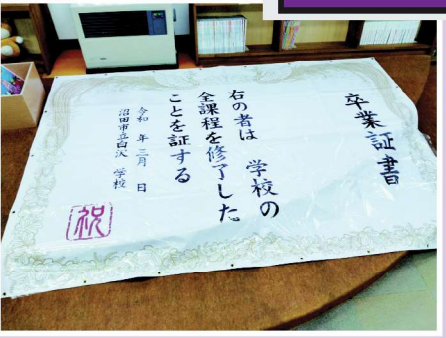 卒業証書
右の者は 学校の
全課程を修了した
ことを証する
令和 年三月 日
沼田市立白沢 学校
祝